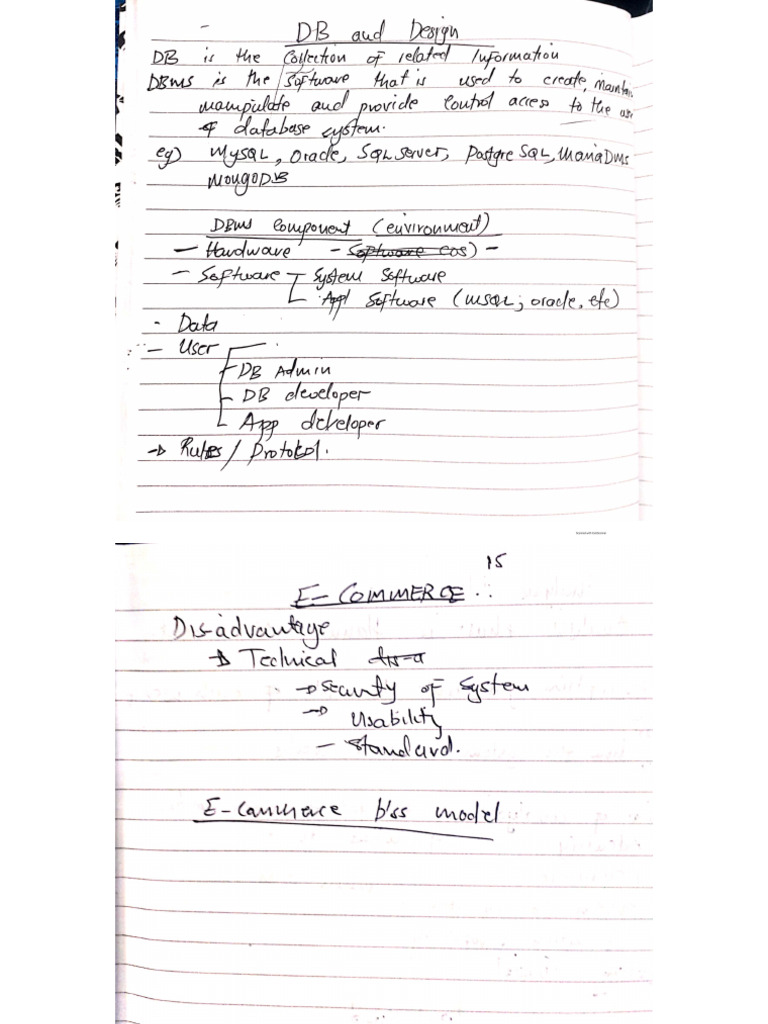 DB and Design
DB is the Collection of related Information
DBMS is the Software that is used to create, maintain
manipulate and provide Control access to the
of database system.
eg) MySQL, Oracle, SQL Server, Postgre SQL, MariaDMS
MongoDB
DBMS Component (environment)
- Hardware - Software eos) -
- Software System Software
Appl Software (MSQL; oracle, etc)
- Data
- User
- DB Admin
- DB developer
- App developer
→ Rules / Protokol.
15
E-COMMERCE
Dis-advantage
→ Technical
→ Security of System
→ Usability
- Standard.
E-Commerce b'ss model